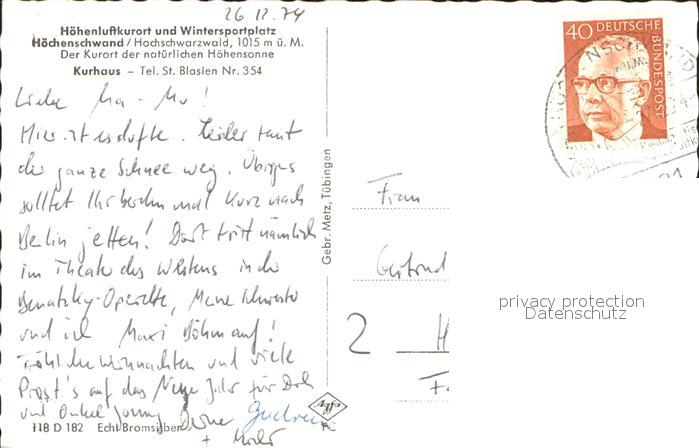 26.12.74
Höhenluftkurort und Wintersportplatz
Höchenschwand / Hochschwarzwald, 1015 m ü. M.
Der Kurort der natürlichen Höhensonne
Kurhaus – Tel. St. Blasien Nr. 354
Liebe Ma-Mu!
Hier ist es dufte. Leider taut
der ganze Schnee weg. Übrigens
solltet Ihr beiden mal kurz nach
Berlin jetten! Dort tritt nämlich
im Theater des Westens in der
Benatzky-Operette, Meine Schwester
und ich Maxi Böhm auf!
Fröhliche Weihnachten und viele
Prost's auf das Neue Jahr für Dich
und Onkel Deine Gudrun
+
118 D 182 Echt Bromsilber
Gebr. Metz, Tübingen
Agfa
40 DEUTSCHE
BUNDESPOST
Frau
Gertrud
2 H
privacy protection
Datenschutz